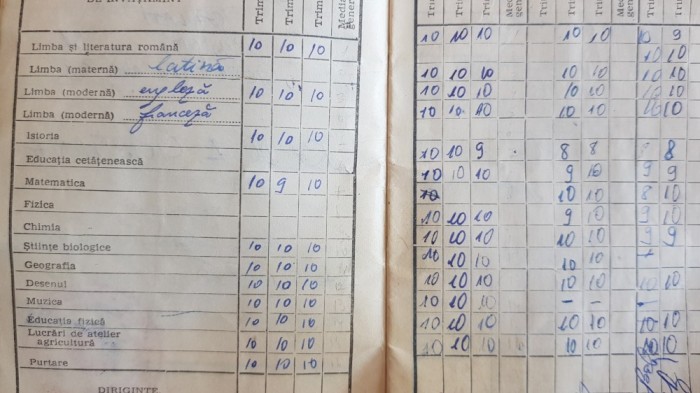 DE ÎNVĂŢĂMÎNT
Trim Trim Trim Media gener
Limba şi literatura română 10 10 10
Limba (maternă) latină
Limba (modernă) engleză 10 10 10
Limba (modernă) franceză
Istoria 10 10 10
Educaţia cetăţenească
Matematica 10 9 10
Fizica
Chimia
Ştiinţe biologice 10 10 10
Geografia 10 10 10
Desenul 10 10 10
Muzica 10 10 10
Educaţia fizică 10 10 10
Lucrări de atelier
agricultură 10 10 10
Purtare 10 10 10
DIRIGINTE
10 10 10 10 10 10 9
10 10
10 10 10 10 10 10 10
10 10 10 10 10 10 10
10 10 10 10 10 10 10
10 10 9 8 8 8
10 10 10 9 10 9 9
10 10 10 8 10
10 10 10 9 10 9 10
10 10 10 10 10 9 9
10 10 10 10 10
10 10 10 10 10 10 10
10 10 10 - - -
10 10 10 10 10 10 10
10 10 10 10 10 10 10